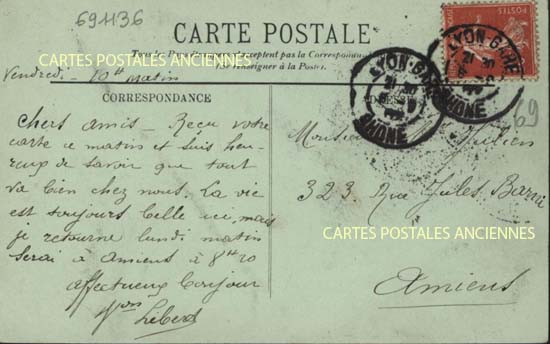 691136
CARTE POSTALE
Tous les Pays étrangers n'acceptent pas la Correspondance
(Se renseigner à la Poste).
CARTES POSTALES ANCIENNES
Vendredi - 10h matin
POSTES
LYON-GARE
21 30
RHONE
LYON-GARE
21 30
RHONE
69
CORRESPONDANCE
Chers amis - Reçu votre
carte ce matin et suis heu-
reux de savoir que tout
va bien chez nous. La vie
est toujours belle ici, mais
je retourne lundi matin
serai à Amiens à 8h20
affectueux bonjour
ADRESSE
Monsieur Julien
323 Rue Jules Barni
CARTES POSTALES ANCIENNES
Amiens